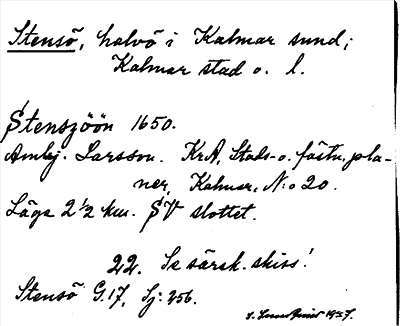 Stensö, halvö i Kalmar sund;
Kalmar stad o. l.
Stenszöön 1650.
Ambj. Larsson. KrA, Stads- o. fästn. pla-
ner, Kalmar, N:o 20.
Läge 2 1/2 km. SV slottet.
22. Se särsk. skiss!
Stensö G.17, Sj: 256.
1957.